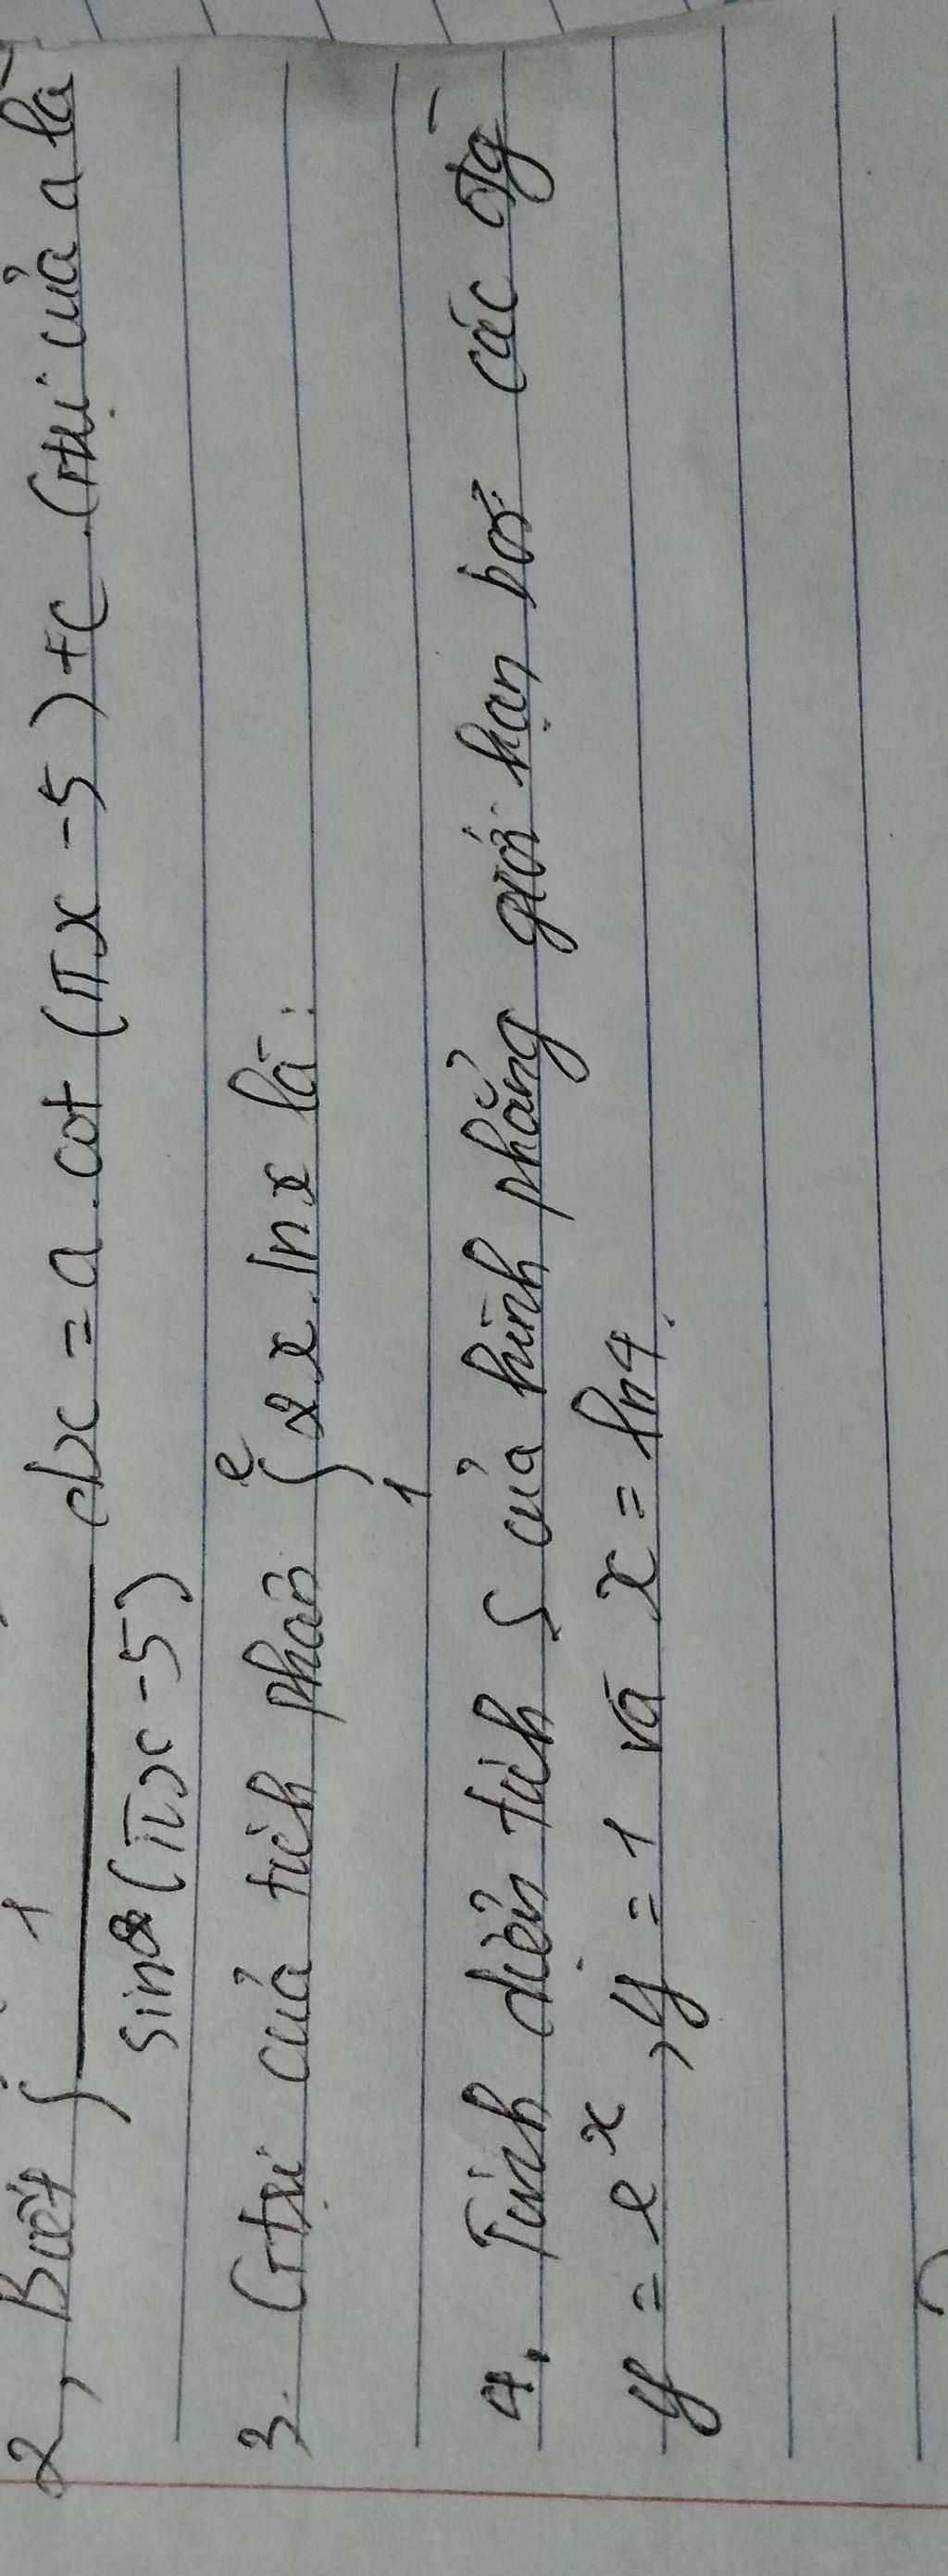 2, Biết ∫ 1/sin²(πx-5) dx = a.cot(πx-5)+C. Gtrị của a là
3. Gtrị của tích phân ∫₁ᵉ 2x.lnx là:
4. Tính diện tích S của hình phẳng giới hạn bởi các đg
y = eˣ, y = 1 và x = ln4.